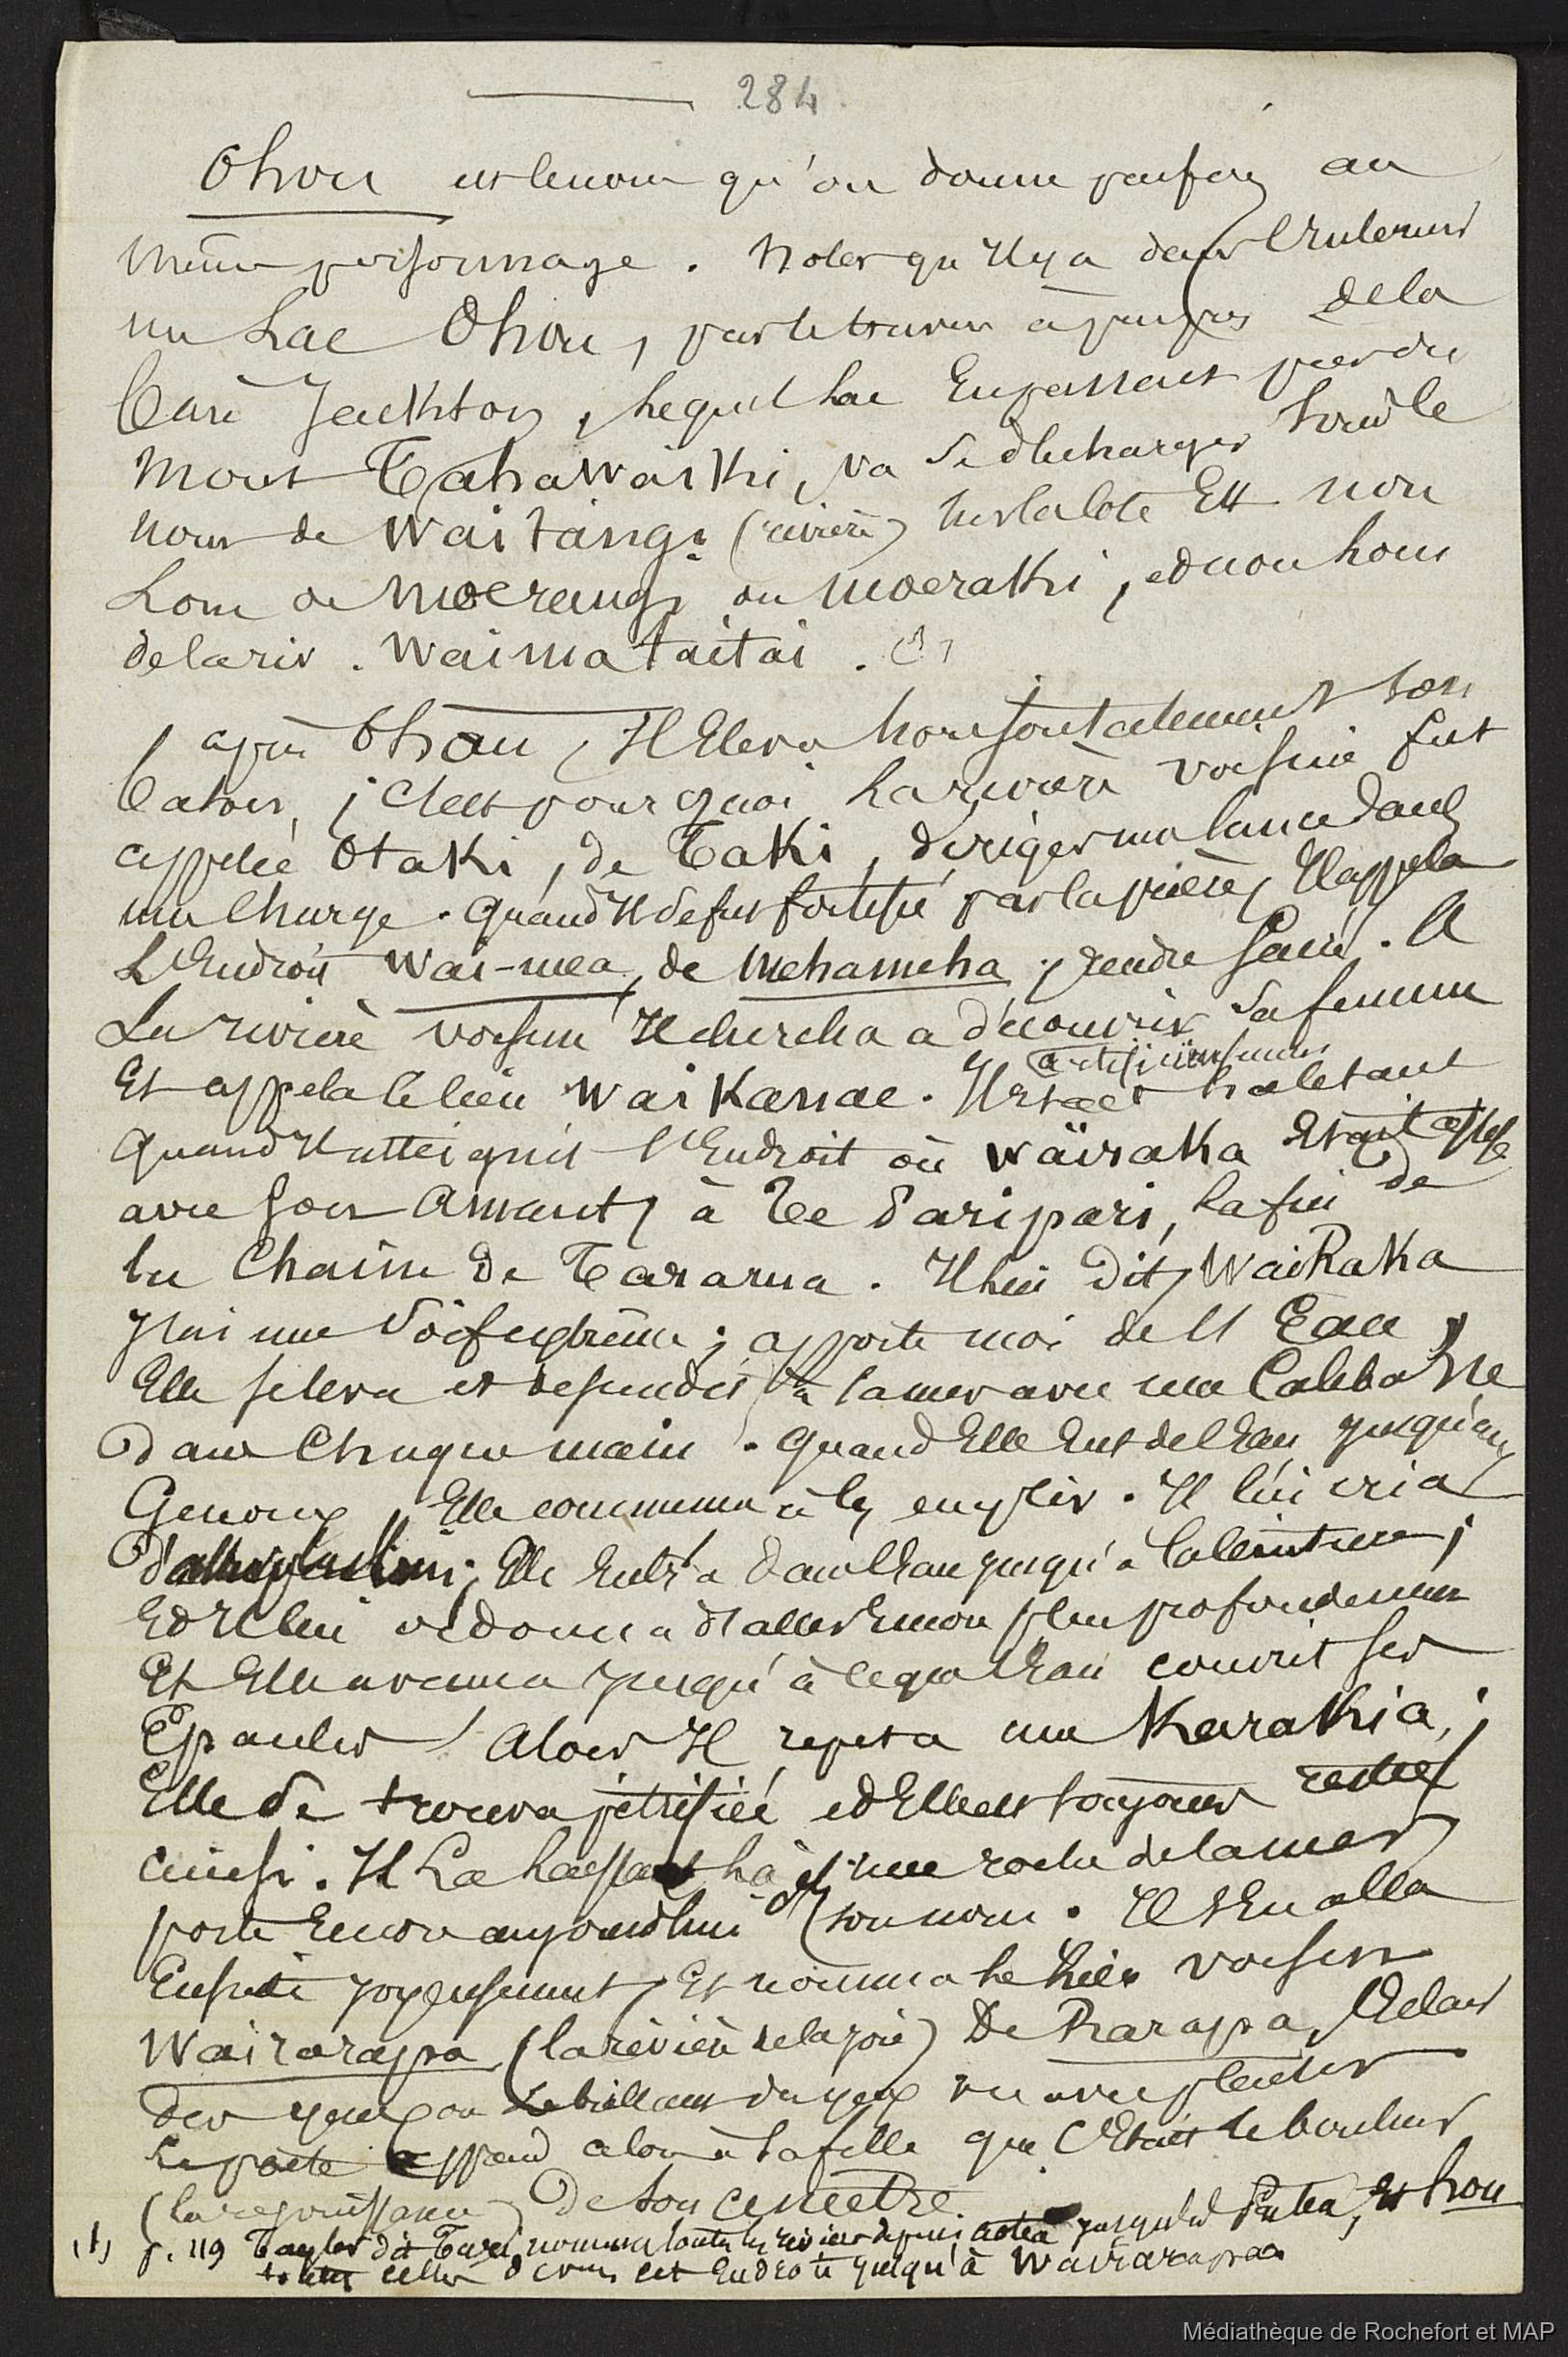 284
Ohou est le nom qu'on donne parfois au
même personnage. Noter qu'il y a dans l'intérieur
un Lac Ohou, par le travers à peu près de la
baie Jackson, lequel lac en passant près du
Mont Tahawaiki, va se décharger sous le
nom de Waitangi (rivière) sur la côte Est non
Loin de Moerangi ou Moeraki, et non loin
de la riv. Waimataitai.
après Ohau, Il Eleva horisontalement son
baton; c'est pourquoi la rivière voisine fut
appelée Otaki, de Taki, diriger une lance dans
une charge. Quand Il se fut fortifié par la prière, Il appela
L'Endroit Wai-mea, de Mehameha, rendre sacré. A
La rivière voisine Il chercha a découvrir sa femme
Et appela le lieu WaiKanae. Il Etait haletant
Quand Il atteignit l'Endroit où WäiraKa Etait assise
avec son Amant, à Te Paripari, la fin de
la Chaîne de Tararua. Il lui Dit, WaiRaKa
J'ai une soif extrême; apporte moi de l'Eau,
Elle se leva et descendit à la mer avec une Calebasse
Dans Chaque main. Quand Elle Eut de l'Eau jusqu'aux
Genoux, Elle commença à les emplir. Il lui cria
d'aller plus loin; Elle Entra dans l'Eau jusqu'à la ceinture;
Et Il lui ordonna d'aller Encore plus profondément
Et Elle avança jusqu'à ce que l'Eau couvrit ses
Epaules. Alors Il repeta une Karakia;
Elle se trouva pétrifiée et Elle est toujours restée
ainsi. Il La laissa là et une roche de la mer
porte Encore aujourdhui son nom. Il s'En alla
Ensuite joyeusement, Et nomma le lieu voisin
Wairarapa (la rivière de la joie) De Rarapa, l'Eclat
des yeux, ou Le brillant des yeux vu avec plaisir
Le poète apprend alors à sa fille que C'Etait le bonheur
(la rejouissance) De son ancetre
(1) p. 119 Taylor dit Turi nomma toutes les rivières depuis Aotea jusqu'à Patea, Et hou
toutes celles depuis cet Endroit jusqu'à Wairarapa
Médiathèque de Rochefort et MAP